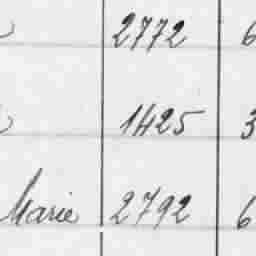 2772 6
1425 3
Marie 2792 6